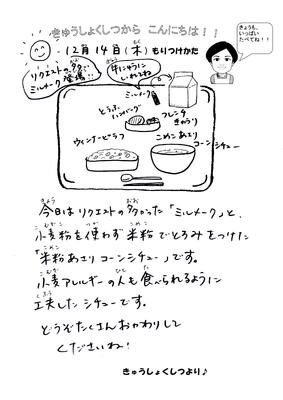 きゅうしょくしつから こんにちは！！
きょうも、
いっぱい
たべてね！！
12月14日(木)もりつけかた
リクエストの多かった
ミルメーク登場!!
牛にゅうに
いれてね
ミルメーク
とうふ
ハンバーグ
フレンチ
きゅうり
ウィンナーピラフ
こめこ あさり
コーンシチュー
今日はリクエストの多かった「ミルメーク」と、
小麦粉を使わず米粉でとろみをつけた
「米粉あさりコーンシチュー」です。
小麦アレルギーの人も食べられるように
工夫したシチューです。
どうぞたくさんおかわりして
くださいね！
きゅうしょくしつより♪